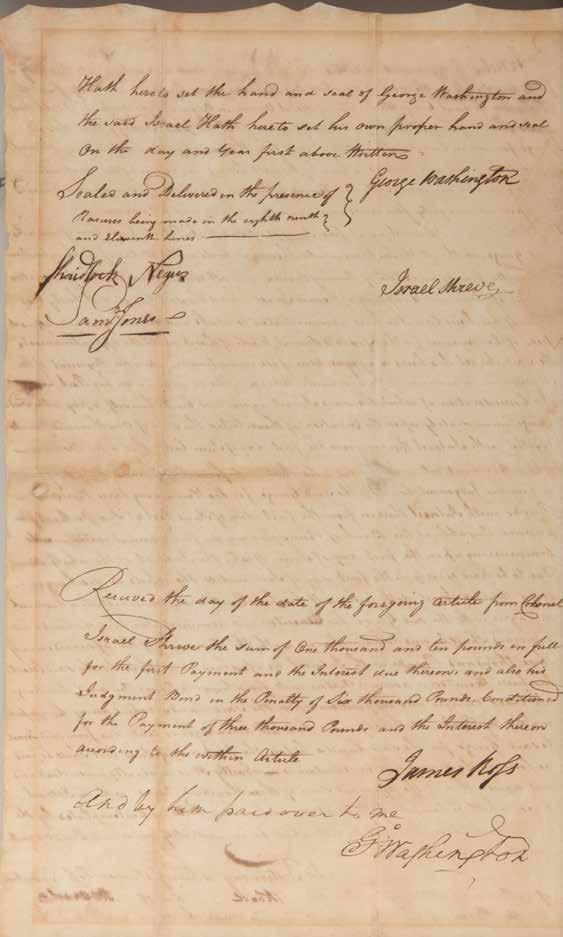 Hath hereto set the hand and seal of George Washington and
the said Israel Hath hereto set his own proper hand and seal
On the day and Year first above Written
Sealed and Delivered in the presence of
Rasures being made in the eighth ninth
and Eleventh lines
George Washington
Shridlock Negus
Israel Shreve
Sam Jones
Received the day of the date of the foregoing Article from Colonel
Israel Shreve the sum of One thousand and ten pounds in full
for the first Payment and the Interest due thereon, and also his
Judgment Bond in the Penalty of Six thousand Pounds, Conditioned
for the Payment of three thousand Pounds and the Interest thereon
according to the within Article
James Ross
And by him paid over to me
Go Washington